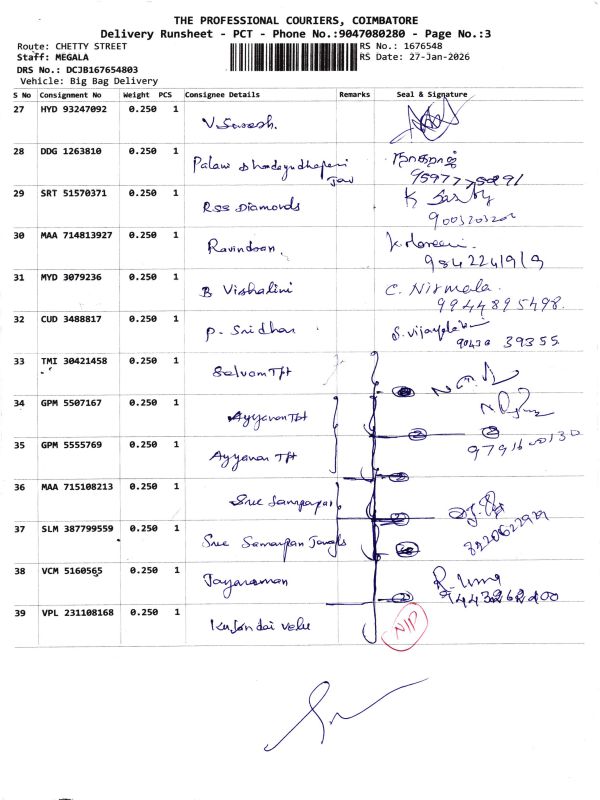 THE PROFESSIONAL COURIERS, COIMBATORE
Delivery Runsheet - PCT - Phone No.:9047080280 - Page No.:3
Route: CHETTY STREET
RS No.: 1676548
Staff: MEGALA
RS Date: 27-Jan-2026
DRS No.: DCJB167654803
Vehicle: Big Bag Delivery
S No Consignment No Weight PCS Consignee Details Remarks Seal & Signature
27 HYD 93247092 0.250 1
28 DDG 1263810 0.250 1 Palani
29 SRT 51570371 0.250 1 RSS Diamonds K
30 MAA 714813927 0.250 1
9842241919
31 MYD 3079236 0.250 1 B Vishalini C. Nirmala
9944895498.
32 CUD 3488817 0.250 1 P. Sridhar
39355
33 TMI 30421458 0.250 1 Selvam Tpt
34 GPM 5507167 0.250 1 Ayyanar Tpt
35 GPM 5555769 0.250 1 Ayyanar Tpt
36 MAA 715108213 0.250 1 Sree
37 SLM 387799559 0.250 1 Sree
38 VCM 5160565 0.250 1 Jayaraman R. Uma
39 VPL 231108168 0.250 1 Kulandai velu NIP